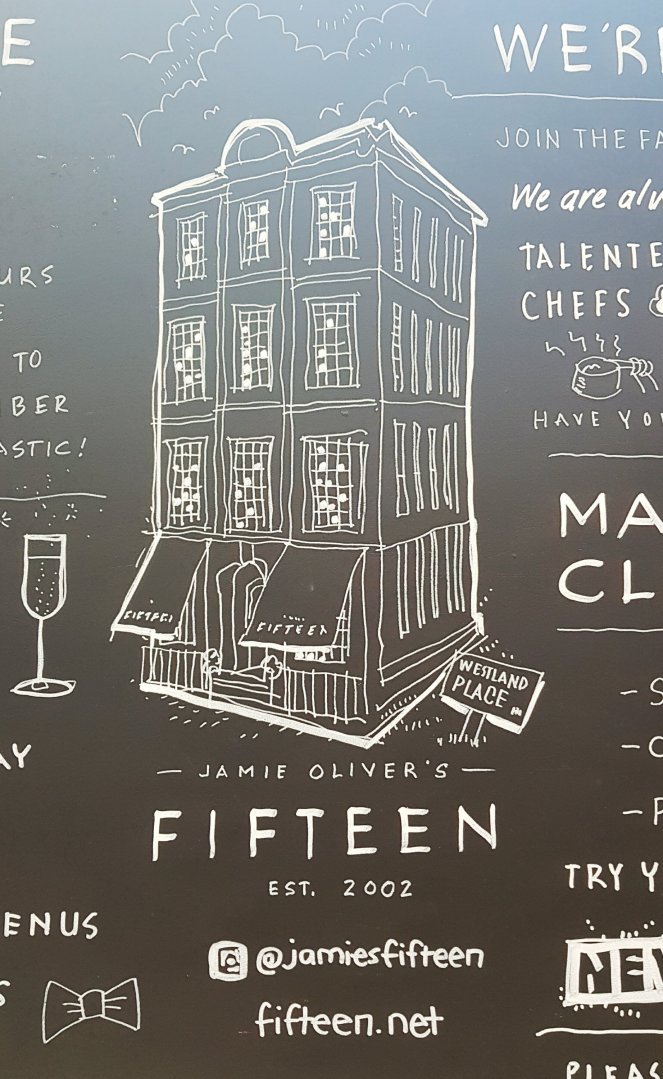 E
WE'RE
JOIN THE
We are
URS
TALENTE
E
CHEFS &
TO
BER
ASTIC!
HAVE YO
MA
CL
FIFTEEN
FIFTEEN
WESTLAND
PLACE
- S
AY
- C
- JAMIE OLIVER'S -
FIFTEEN
- P
EST. 2002
TRY Y
ENUS
@jamiesfifteen
NEW
S
fifteen.net
PLEAS